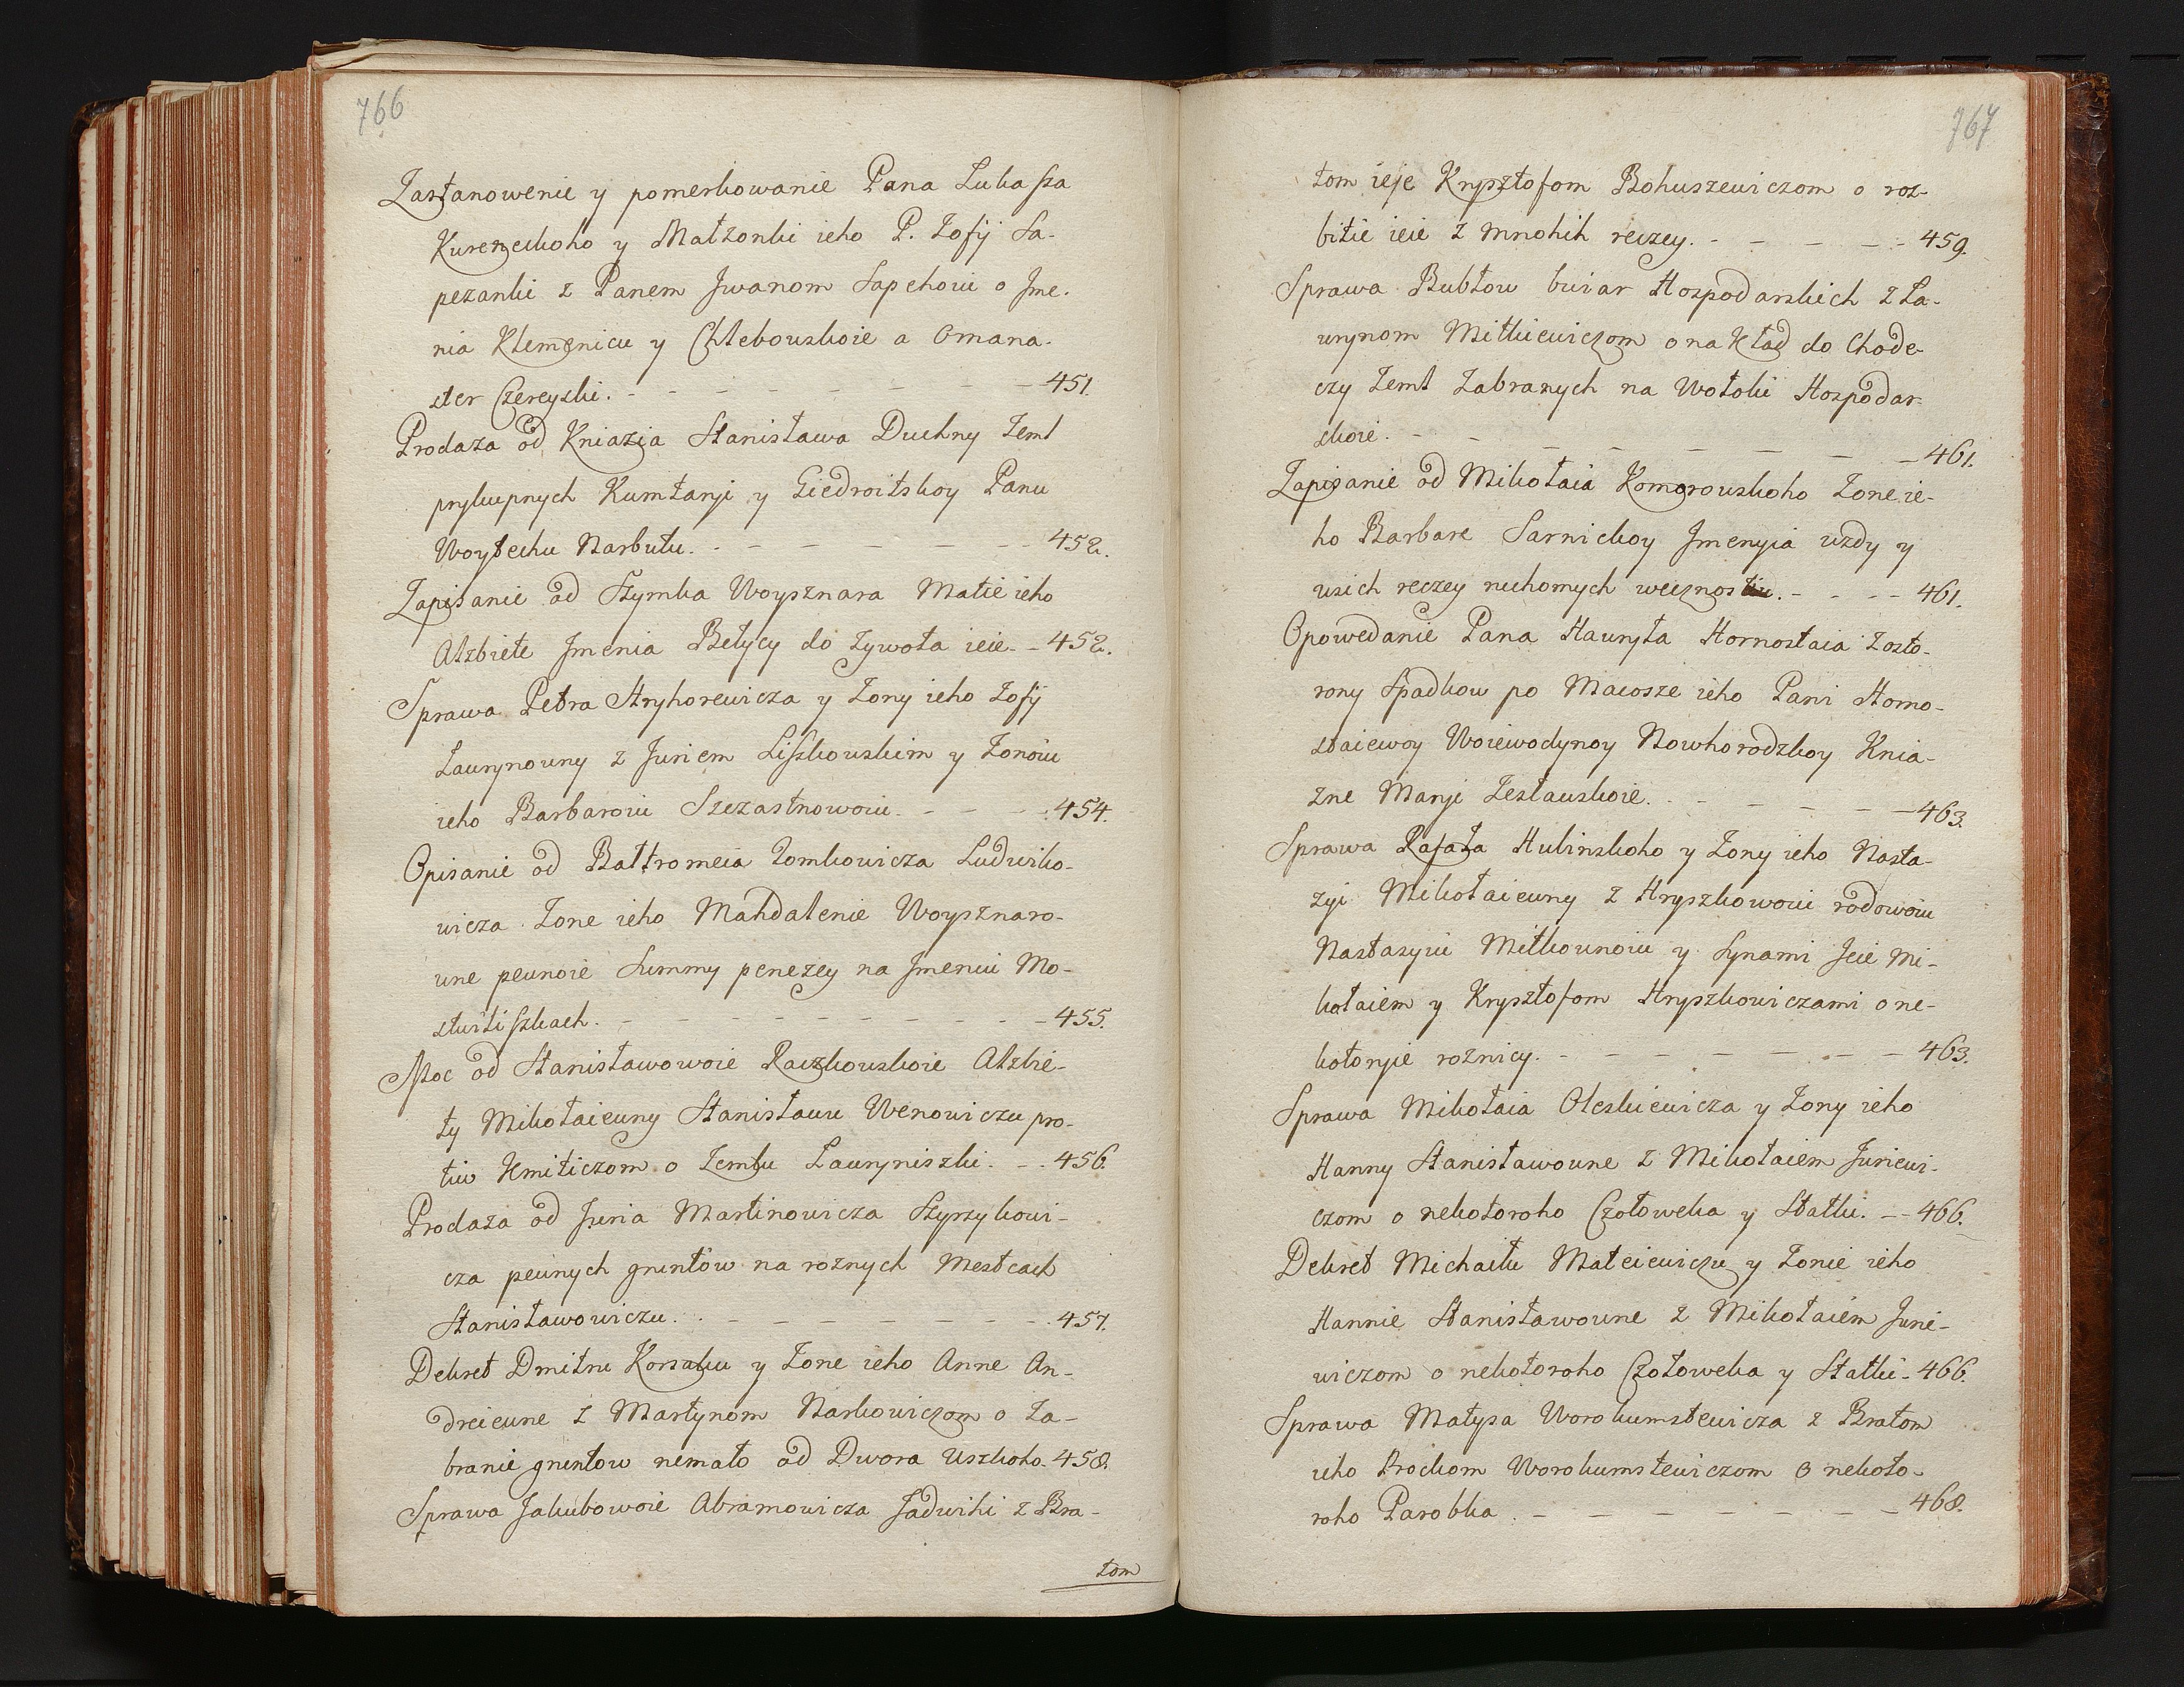 766
Zastanowenie y pomerkowanie Pana Lukasza
Kureneckoho y Małżonki ieho P. Zofij Sa-
peżanki z Panem Jwanom Sapehoiu o Jme-
nia Klemenicu y Chlebouskoie a omana-
ster Czereyski. - - - - - - - - 451.
Prodaża od Kniazia Stanisława Duchny Zeml
prykupnych Kumtanji y Giedroitskoy Panu
Woytechu Narbutu. - - - - - - 452.
Zapisanie od Szymka Woysznara Matie ieho
Alżbiete Jmenia Betycy do żywota ieie - - 452.
Sprawa Petra Hryhorewicza y Żony ieho Zofij
Laurynouny z Juriem Liszkouskim y Żonoiu
ieho Barbaroiu Szczastnowoiu. - - - 454.
Opisanie od Baltromeia Tomkowicza Ludwiko-
wicza Żone ieho Mahdalenie Woysznaro-
une peunoie Summy penezey na Jmeniu Mo-
stwiliszkach. - - - - - - - - 455.
Moc od Stanisławowoie Raczkouskoie Alżbie-
ty Mikołaieuny Stanisławu Wenowiczu pro-
tiw Kmiticzom o Zemlu Lauryniszki. - - 456.
Prodaża od Juria Martinowicza Szyrzykowi-
cza peunych gruntów na rożnych Mestcach
Stanisławowiczu. - - - - - - - - 457.
Dekret Dmitru Korsaku y Żone ieho Anne An-
dreieune z Martynom Narkowiczom o Za-
branie gruntow nemało od Dwora Uszkoho. 458.
Sprawa Jakubowoie Abramowicza Jadwihi z Bra-
tom
767
tom ieie Krysztofom Bohuszewiczom o roz-
bitie ieie z mnohih reczey. - - - - - 459.
Sprawa Bubłow boiar Hospodarskich z La-
urynom Mitkiewiczom o nakład do Chode-
czy Zeml zabranych na Wołoki Hospodar-
skoie. - - - - - - - - 461.
Zapisanie od Mikołaia Komorouskoho Żone ie-
ho Barbare Sarnickoy Jmenyia uzdy y
usich reczey ruchomych wecznostiu. - - - - 461.
Opowedanie Pana Hauryła Hornostaia z sto-
rony Spadkow po Macosze ieho Pani Horno-
staiewoy Woiewodynoy Nowhorodzkoy Knia-
żne Maryi Zesłauskoie. - - - - - - 463.
Sprawa Rafała Hubinskoho y Żony ieho Nasta-
zyi Mikołaieuny z Hryszkowoiu rodowoiu
Nastasyiu Mitkounoiu y Synami Jeie Mi-
kołaiem y Krysztofom Hryszkowiczami o ne-
kotoryie roznicy. - - - - - - - - 463.
Sprawa Mikołaia Oleskiewicza y Żony ieho
Hanny Stanisławoune z Mikołaiem Juriewi-
czom o nekotoroho Czołoweka y Statki. - - 466.
Dekret Michaiłu Mateiewiczu y Żonie ieho
Hannie Stanisławoune z Mikołaiem Jurie-
wiczom o nekotoroho Czołoweka y Statki - 466.
Sprawa Matysa Worokumstewicza z Bratom
ieho Prockom Worokumstewiczom o nekoto-
roho Parobka. - - - - - - - 468.